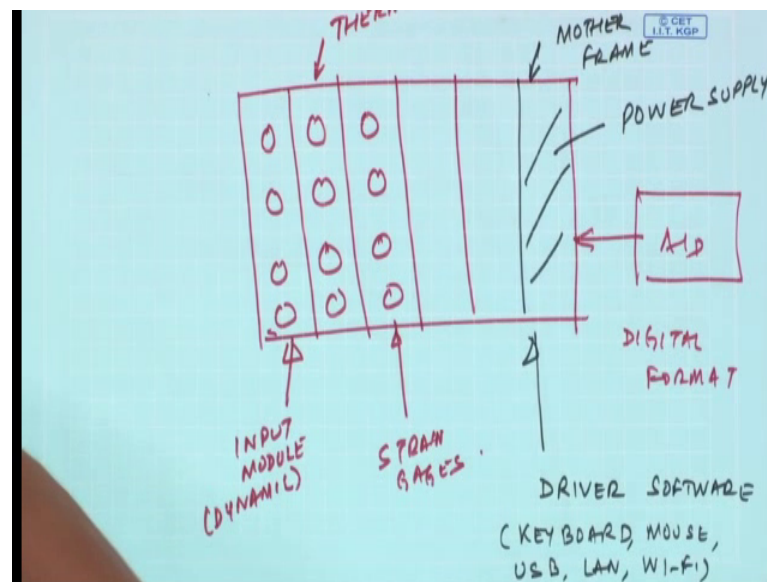 © CET
I.I.T. KGP
MOTHER
FRAME
POWER SUPPLY
A/D
DIGITAL
FORMAT
INPUT
MODULE
(DYNAMIC)
STRAIN
GAGES.
DRIVER SOFTWARE
(KEYBOARD, MOUSE,
USB, LAN, WI-FI)